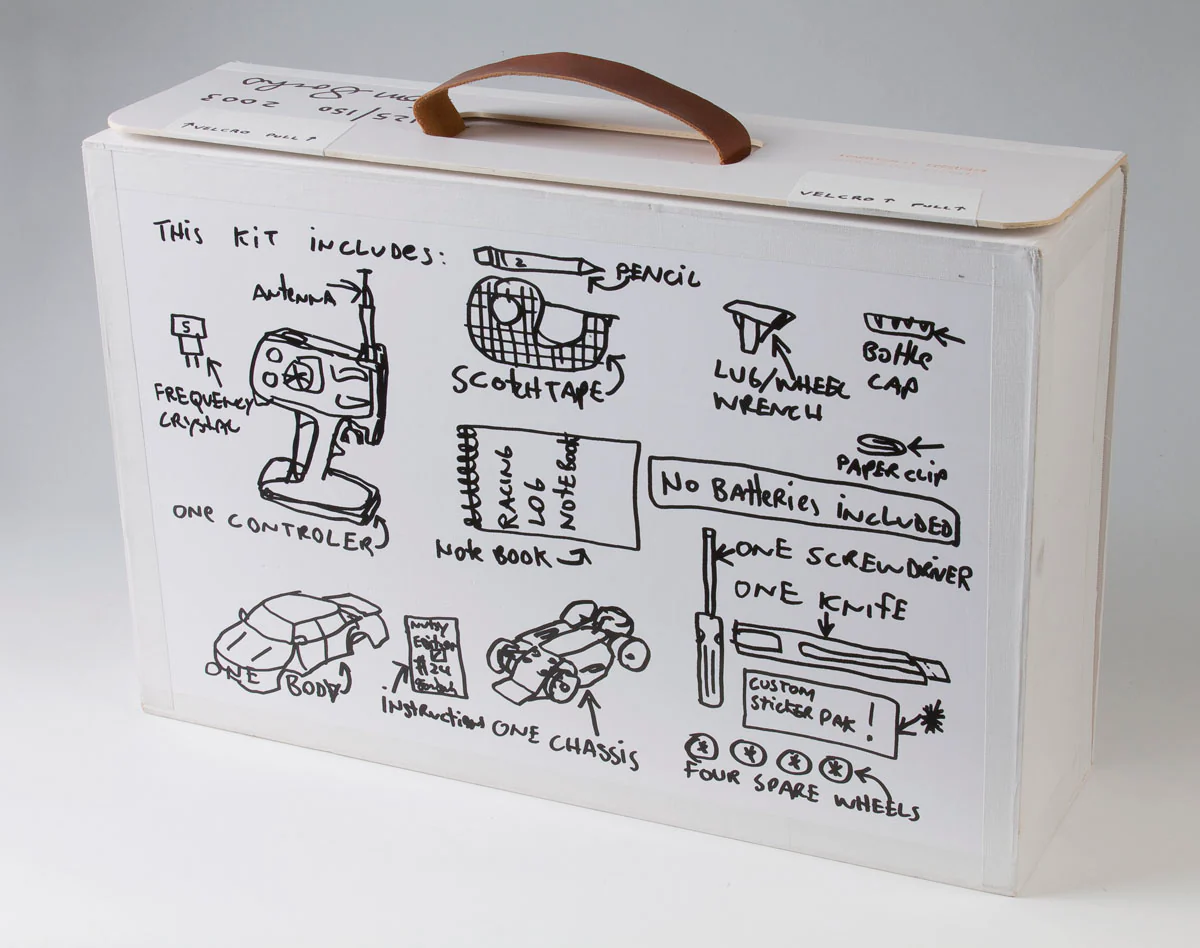 125/150 2003
↑VELCRO PULL↑
VELCRO ↑ PULL↑
THIS KIT INCLUDES:
2
PENCIL
ANTENNA
S
FREQUENCY
CRYSTAL
SCOTCH TAPE
LUG/WHEEL
WRENCH
BOttle
CAP
PAPER CLIP
ONE CONTROLER
RACING
LOG
NOTEBOOK
NOtE BOOK
NO BAtteRiES iNCLUDED
ONE SCREWDRIVER
ONE KNifE
ONE BODY
INStRUCtiON
ONE CHASSIS
CUSTOM
SticKER PAK!
FOUR SPARE WHEELS